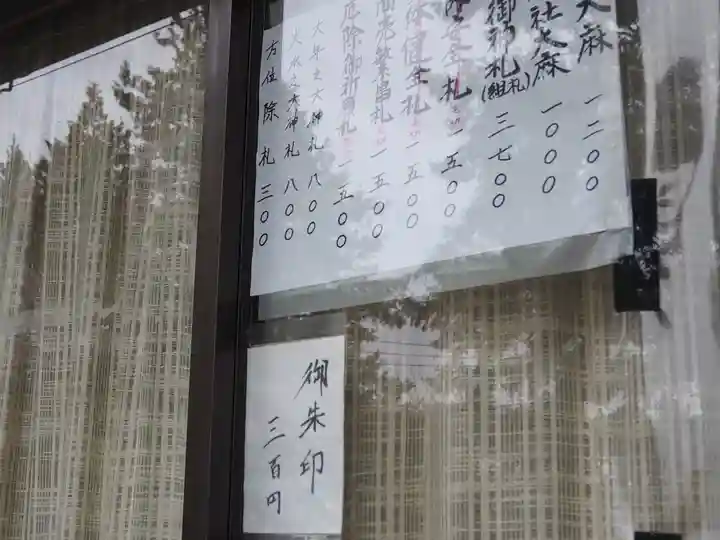 大麻 一二〇〇
社大麻 一〇〇〇
御神札(組札) 三七〇〇
全札 一五〇〇
体健全札 一五〇〇
商売繁昌札 一五〇〇
厄除御祈祷札 一五〇〇
大年之大神札 八〇〇
火水之大神札 八〇〇
方位除札 三〇〇
御朱印
三百円